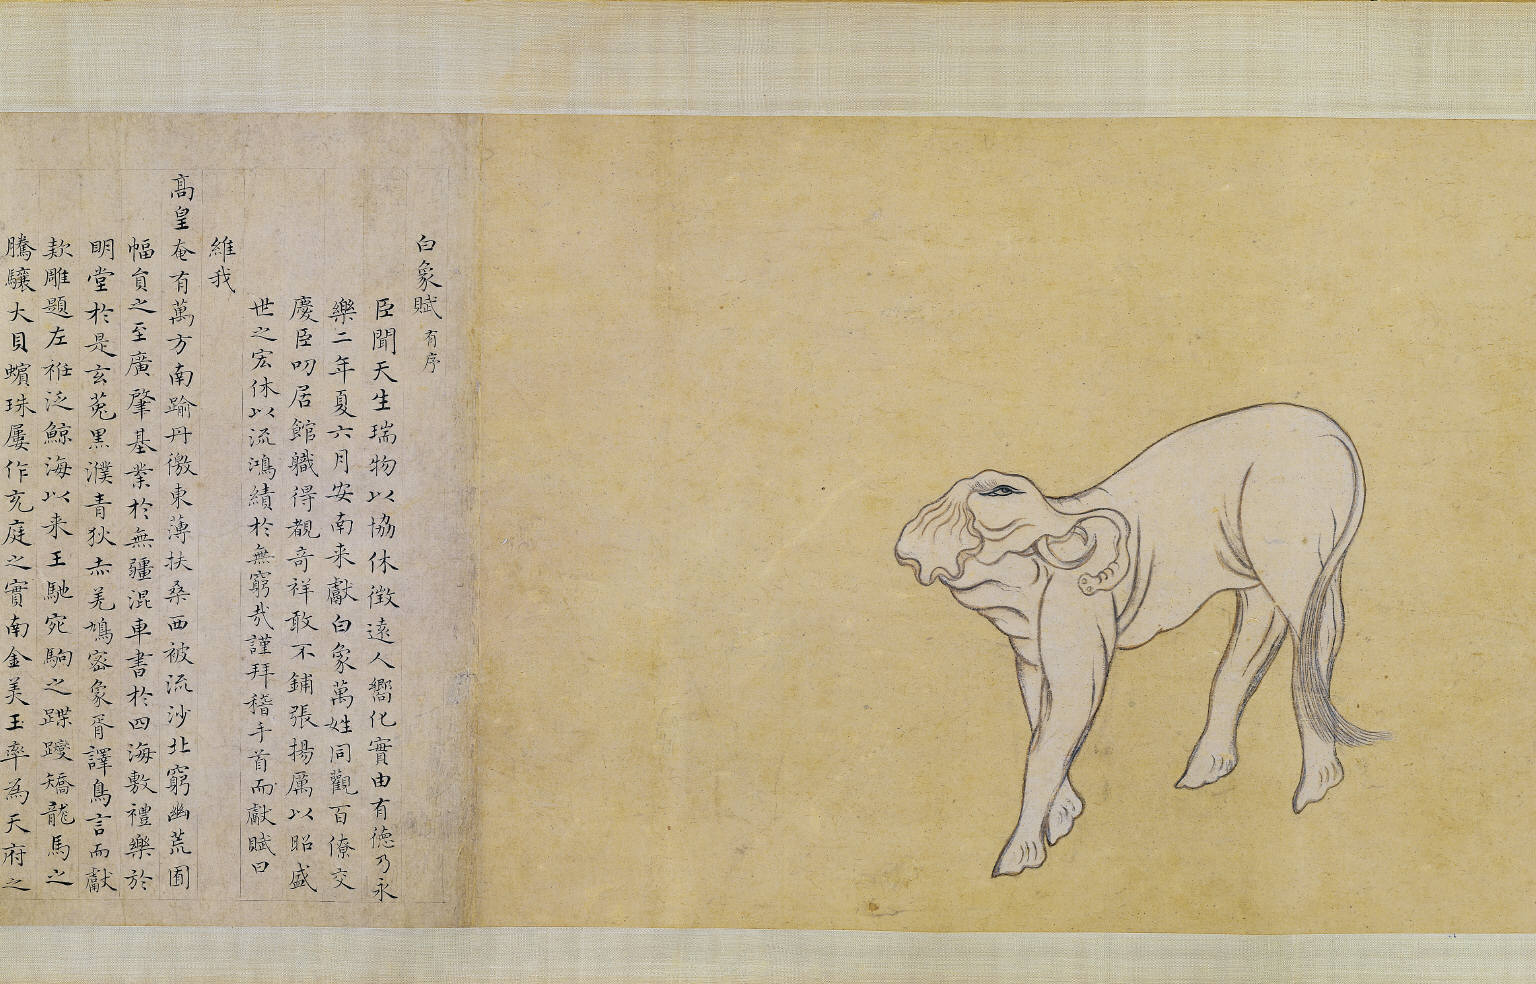 白象賦有序
臣聞天生瑞物以協休徵遠人嚮化實由有德乃永
樂二年夏六月安南来獻白象萬姓同觀百僚交
慶臣叨居館職得覩奇祥敢不鋪張揚厲以昭盛
世之宏休以流鴻績於無窮哉謹拜稽手首而獻賦曰
維我
高皇奄有萬方南踰丹徼東薄扶桑西被流沙北窮幽荒囿
幅員之至廣肇基業於無疆混車書於四海敷禮樂於
明堂於是玄菟黑濮青狄赤羌鳩密象胥譯鳥言而獻
款雕題左袵泛鯨海以来王馳宛駒之蹀躞矯龍馬之
騰驤大貝蠙珠屢作充庭之實南金美玉率為天府之